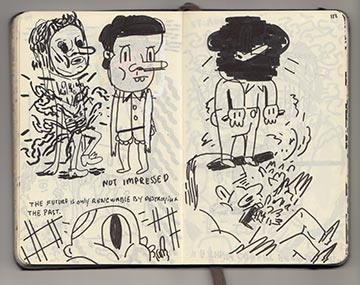 NOT IMPRESSED
THE FUTURE IS ONLY RENEWABLE BY DESTROYING
THE PAST.